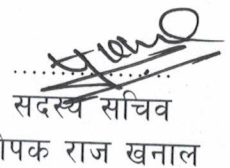 सदस्य सचिव
ोपक राज खनाल